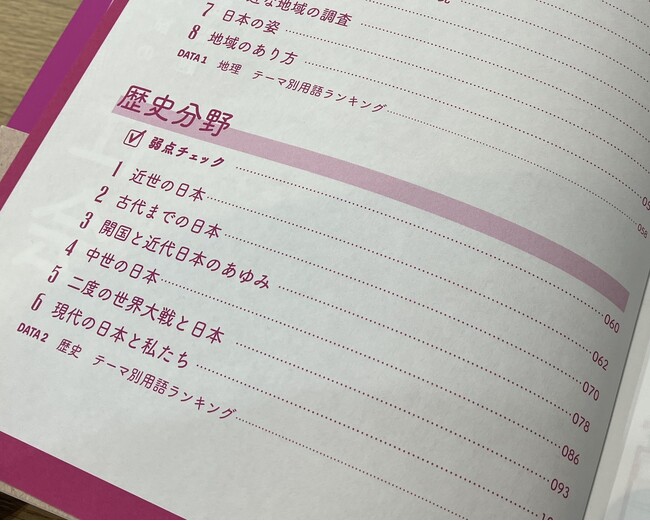 近な地域の調査
7 日本の姿
8 地域のあり方
DATA1 地理 テーマ別用語ランキング 058
歴史分野
弱点チェック 060
1 近世の日本 062
2 古代までの日本 070
3 開国と近代日本のあゆみ 078
4 中世の日本 086
5 二度の世界大戦と日本 093
6 現代の日本と私たち
DATA2 歴史 テーマ別用語ランキング